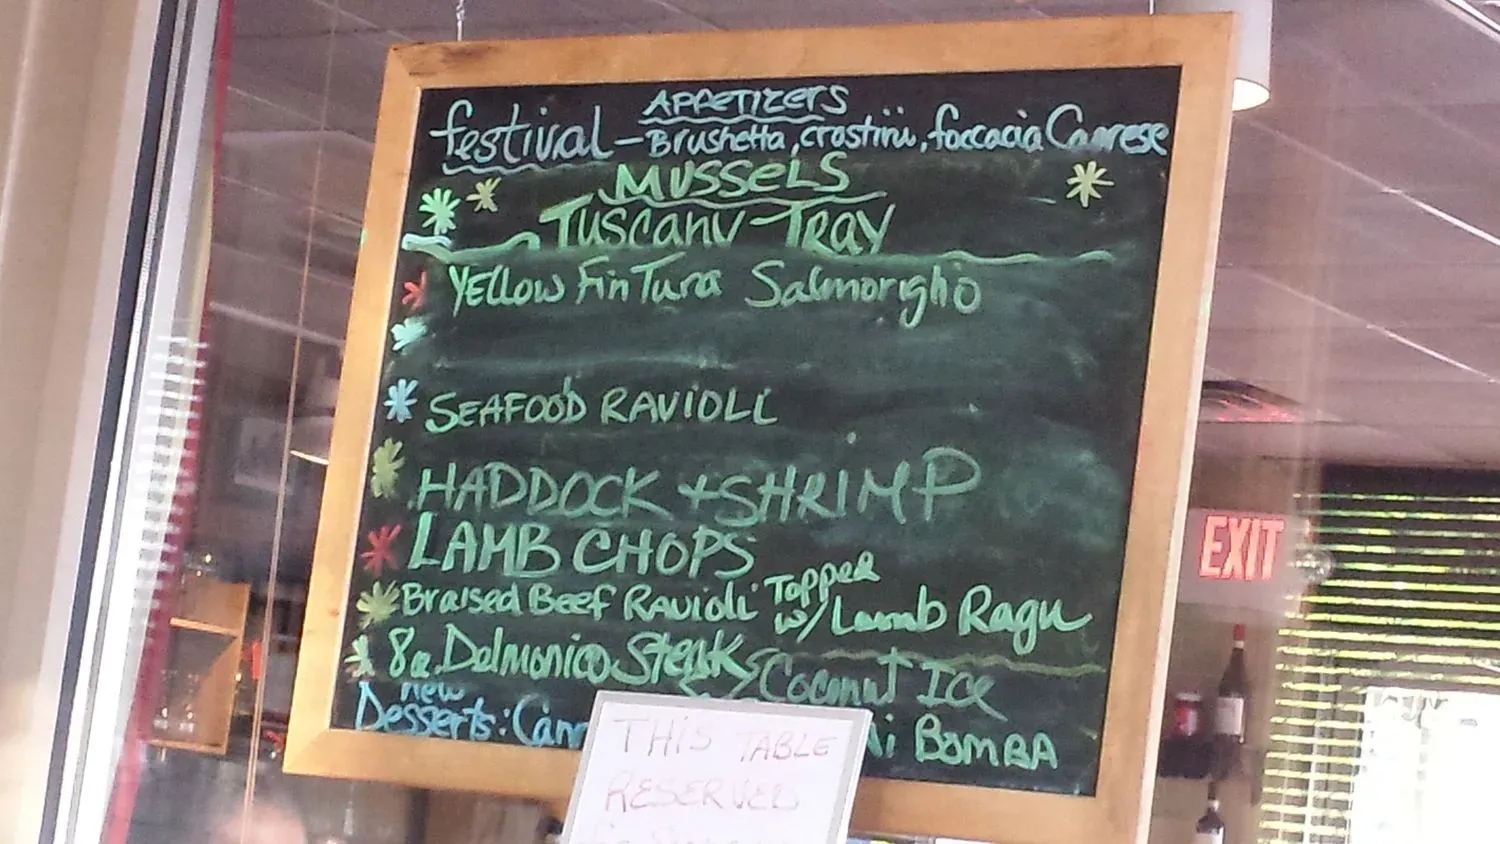 APPETIZERS
festival - Brushetta, crostini, foccacia Caprese
MUSSELS
TUSCANY TRAY
YELLOW Fin Tuna Salmoriglio
SEAFOOD RAVIOLI
HADDOCK + SHRIMP
LAMB CHOPS
Braised Beef RAVIOLI TOPPED
w/ Lamb Ragu
8oz Delmonico Steak
new
Coconut Ice
Desserts: Cann
BOMBA
THIS TABLE
RESERVED
EXIT